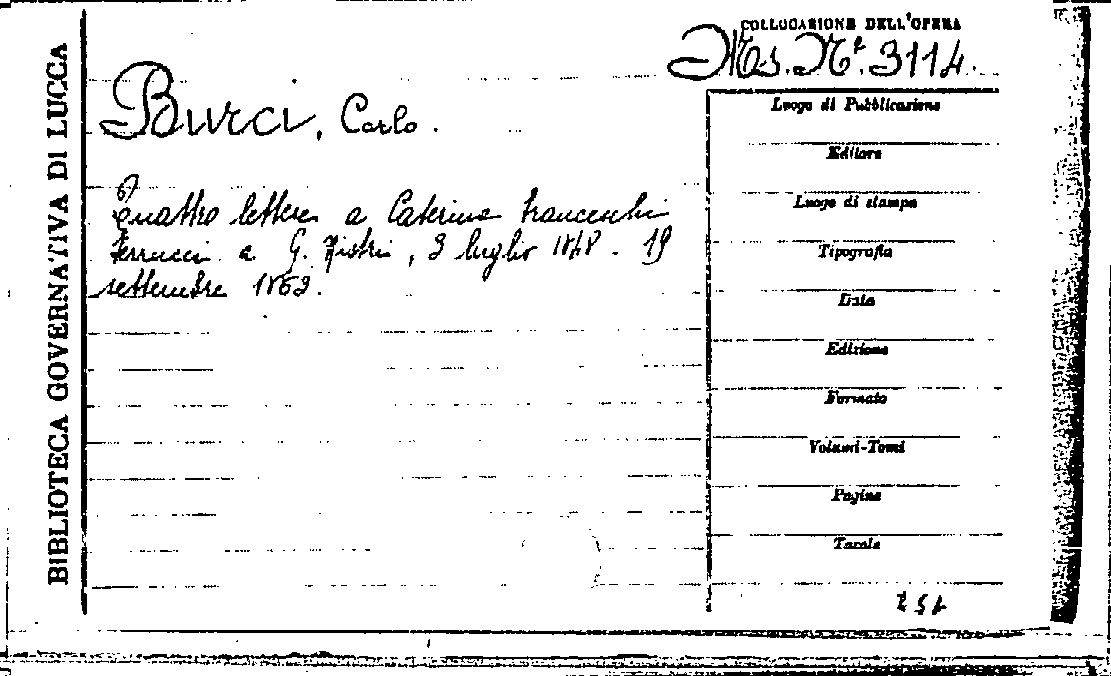 BIBLIOTECA GOVERNATIVA DI LUCCA
COLLOCAZIONE DELL'OPERA
Ms. Nº. 3114.
Burci, Carlo.
Quattro lettere a Caterina Franceschi
Ferrucci a G. , 3 luglio 1848 - 19
settembre 1863.
Luogo di Pubblicazione
Editore
Luogo di stampa
Tipografia
Data
Edizione
Formato
Volumi-Tomi
Pagine
Tavole